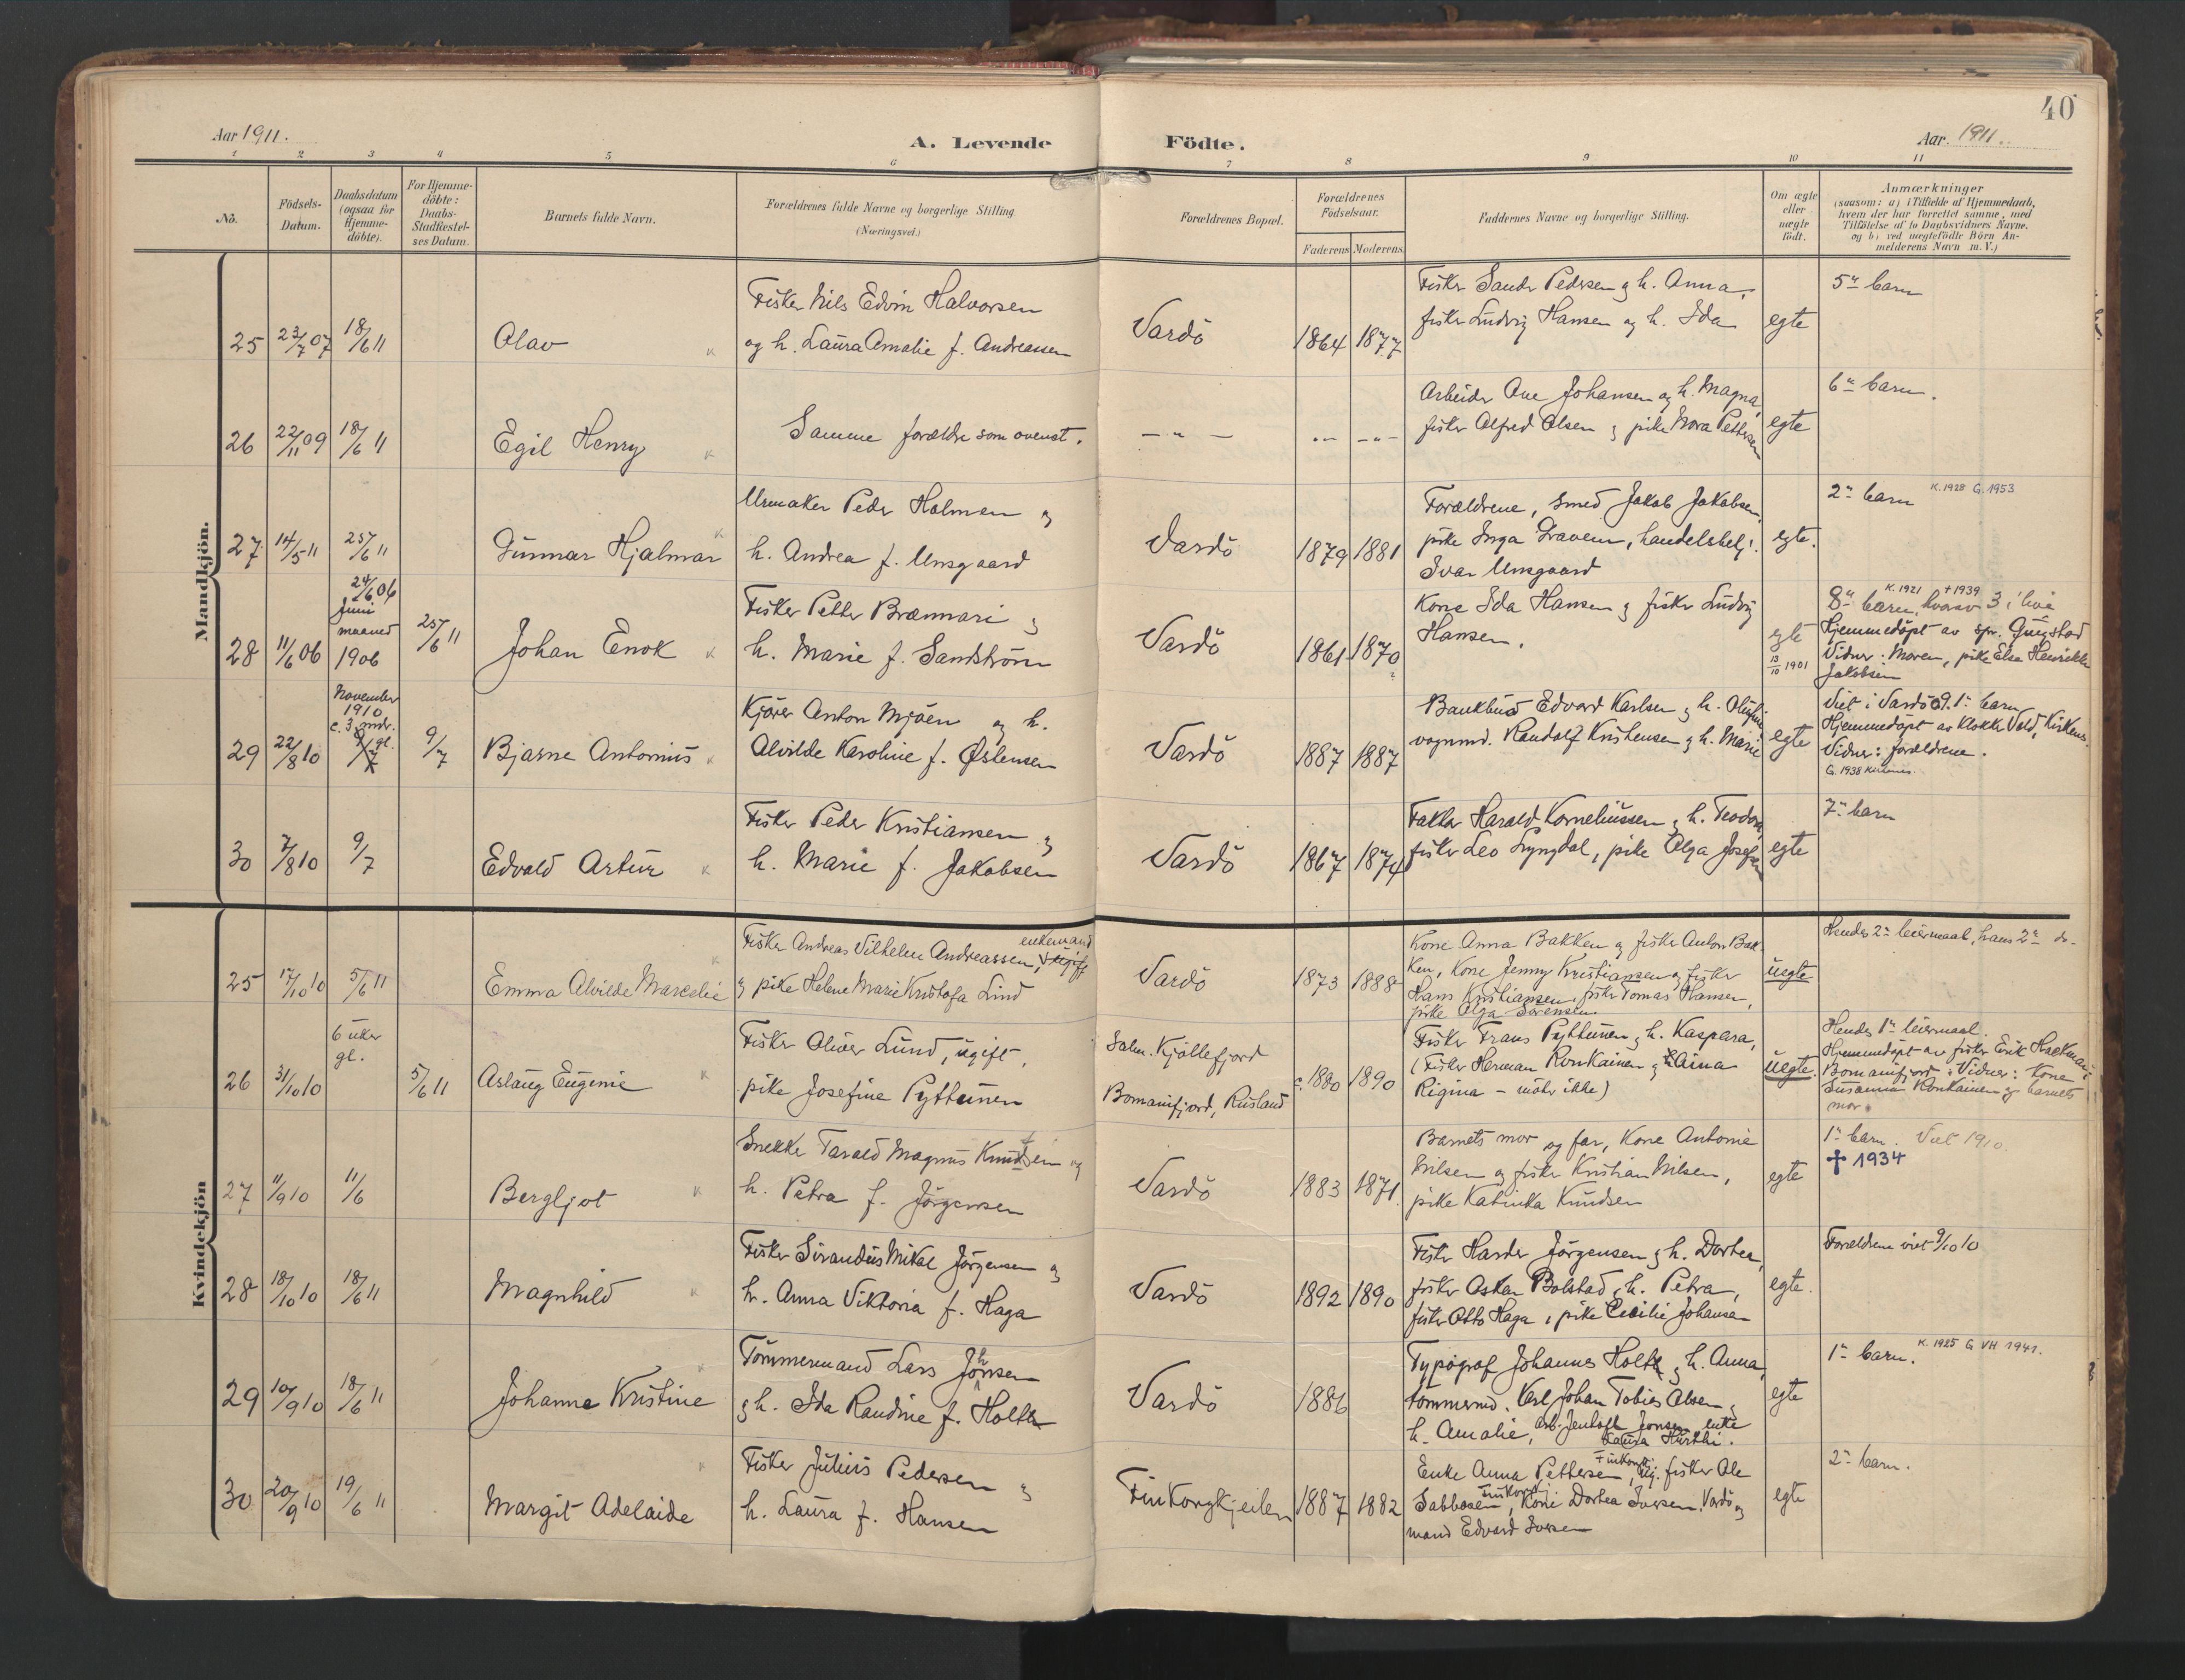 40
Aar 1911.
A. Levende Födte.
Aar. 1911.
1 2 3 4 5 6 7 8 9 10 11
No.
Födsels-
Datum.
Daabsdatum
(ogsaa for
Hjemme-
döbte).
For Hjemme-
döbte:
Daabs-
Stadfæstel-
ses Datum.
Barnets fulde Navn.
Forældrenes fulde Navne og borgerlige Stilling
(Næringsvei.)
Forældrenes Bopæl.
Forældrenes
Födselsaar.
Faderens Moderens
Faddernes Navne og borgerlige Stilling.
Om ægte
eller
uægte
födt.
Anmærkninger
(saasom: a) i Tilfælde af Hjemmedaab,
hvem der har forrettet samme, med
Tilföielse af to Daabsvidners Navne.
og b) ved uægtefödte Börn An-
melderens Navn m. V.)
Mandkjön.
25 23/7 07 18/6 11
Olav
Fisker Nils Edvin Halvorsen
og h. Laura Amalie f. Andreassen
Vardö
1864 1877
Fisker Sander Pedersen og h. Anna,
fisker Ludvig Hansen og h. Ida
egte
5te barn
26 22/11 09 18/6 11
Egil Henry
Samme forældre som ovenst.
— " —
Arbeider Ove Johansen og h. Magna,
fisker Alfred Olsen og pike Nora Pettersen
egte
6te barn.
27 14/5 11 25/6 11
Gunnar Hjalmar
Urmaker Peder Holmen og
h. Andrea f. Unsgaard
Vardö
1879 1881
Forældrene, smed Jakob Jakobsen,
pike Inga Gravem, handelsbetj.
Ivar Unsgaard
egte.
2. barn K. 1928 G. 1953
28 11/6 06
24/6 06
Juni
maaned
1906
25/6 11
Johan Enok
Fisker Petter Brænmari og
h. Marie f. Sandström
Vardö
1861 1870
Kone Ida Hansen og fisker Ludvig
Hansen.
egte
13/10 1901
K. 1921 + 1939
8de barn, hvorav 3 i live
Hjemmedöpt av spr. Gjugstad
Vidner: Moren, pike Elsa Henrikke
Jakobsen
29 22/8 10
November
1910
c. 3 mdr.
gl.
9/7
9/7
Bjarne Antonius
Kjörer Anton Mjöen og h.
Alvilde Karoline f. Østensen
Vardö
1887 1887
Bankbud Edvard Karlsen og h. Oluffine
vognmd. Randolf Kristensen og h. Marie
egte
Viet i Vardö 09. 1. barn
Hjemmedöpt av klokker Vold, Kirkenes.
Vidner: forældrene.
G. 1938 Kirkenes
30 7/8 10 9/7
Edvald Artur
Fisker Peder Kristiansen og
h. Marie f. Jakobsen
Vardö
1867 1874
Faktor Harald Korneliussen og h. Teodora,
fisker Leo Lyngdal, pike Olga Josefsen
egte
7. barn
Kvindekjön
25 17/10 10 5/6 11
Emma Alvilde Marcelie
Fisker Andreas Vilhelm Andreassen, enkemand ugift
og pike Helene Marie Kristofa Lind
Vardö
1873 1888
Kone Anna Bakken og fisker Anton Bak-
ken, Kone Jenny Kristiansen og fisker
Hans Kristiansen, fisker Tomas Hansen,
pike Olga Sörensen.
uegte
Hendes 2. leiermaal, hans 2. do.
26 31/10 10
6 uker
gl.
5/6 11
Aslaug Eugenie
Fisker Oliver Lund, ugift,
pike Josefine Pyttunen
Salm. Kjöllefjord
Bomanifjord, Rusland
c. 1880 1890
Fisker Frans Pyttunen og h. Kaspara,
(Fisker Herman Ronkainen og Aina
Rigina – möter ikke)
uegte.
Hendes 1. leiermaal.
Hjemmedöpt av fisker Erik Hackman i
Bomanifjord. Vidner: Kone
Susanna Ronkainen og barnets
mor.
27 11/9 10 11/6
Bergljot
Snekker Tarald Magnus Knudsen og
h. Petra f. Jörgensen
Vardö
1883 1871.
Barnets mor og far, Kone Antonie
Nilsen og fisker Kristian Nilsen,
pike Katinka Knudsen
egte
1. barn. Viet 1910
✝ 1934
28 18/10 10 18/6 11
Magnhild
Fisker Sivandus Mikal Jörgensen og
h. Anna Viktoria f. Haga
Vardö
1892 1890
Fisker Harder Jörgensen og h. Dortea,
fisker Oskar Bolstad, h. Petra,
fisker Otto Haga, pike Cecilie Johansen
egte.
Forældrene viet 9/10 10
29 10/9 10 18/6 11
Johanne Kristine
Tömmermand Lars Johnsen
og h. Ida Randine f. Holte
Vardö
1886
Typograf Johannes Holte og h. Anna,
tömmermd. Karl Johan Tobias Olsen og
h. Amalie, arb. Jentoft Jonsen, enke
Laura Hurthi.
egte
1. barn. K. 1925 G VH 1941.
30 20/9 10 19/6 11
Margit Adelaide
Fisker Julius Pedersen og
h. Laura f. Hansen
Finkongkjeilen
1887 1882
Enke Anna Pettersen, Finkongkj. fisker Ole
Sabbasen, Finkong. Kone Dortea Iversen, Vardö og
mand Edvard Iversen
egte
2. barn.